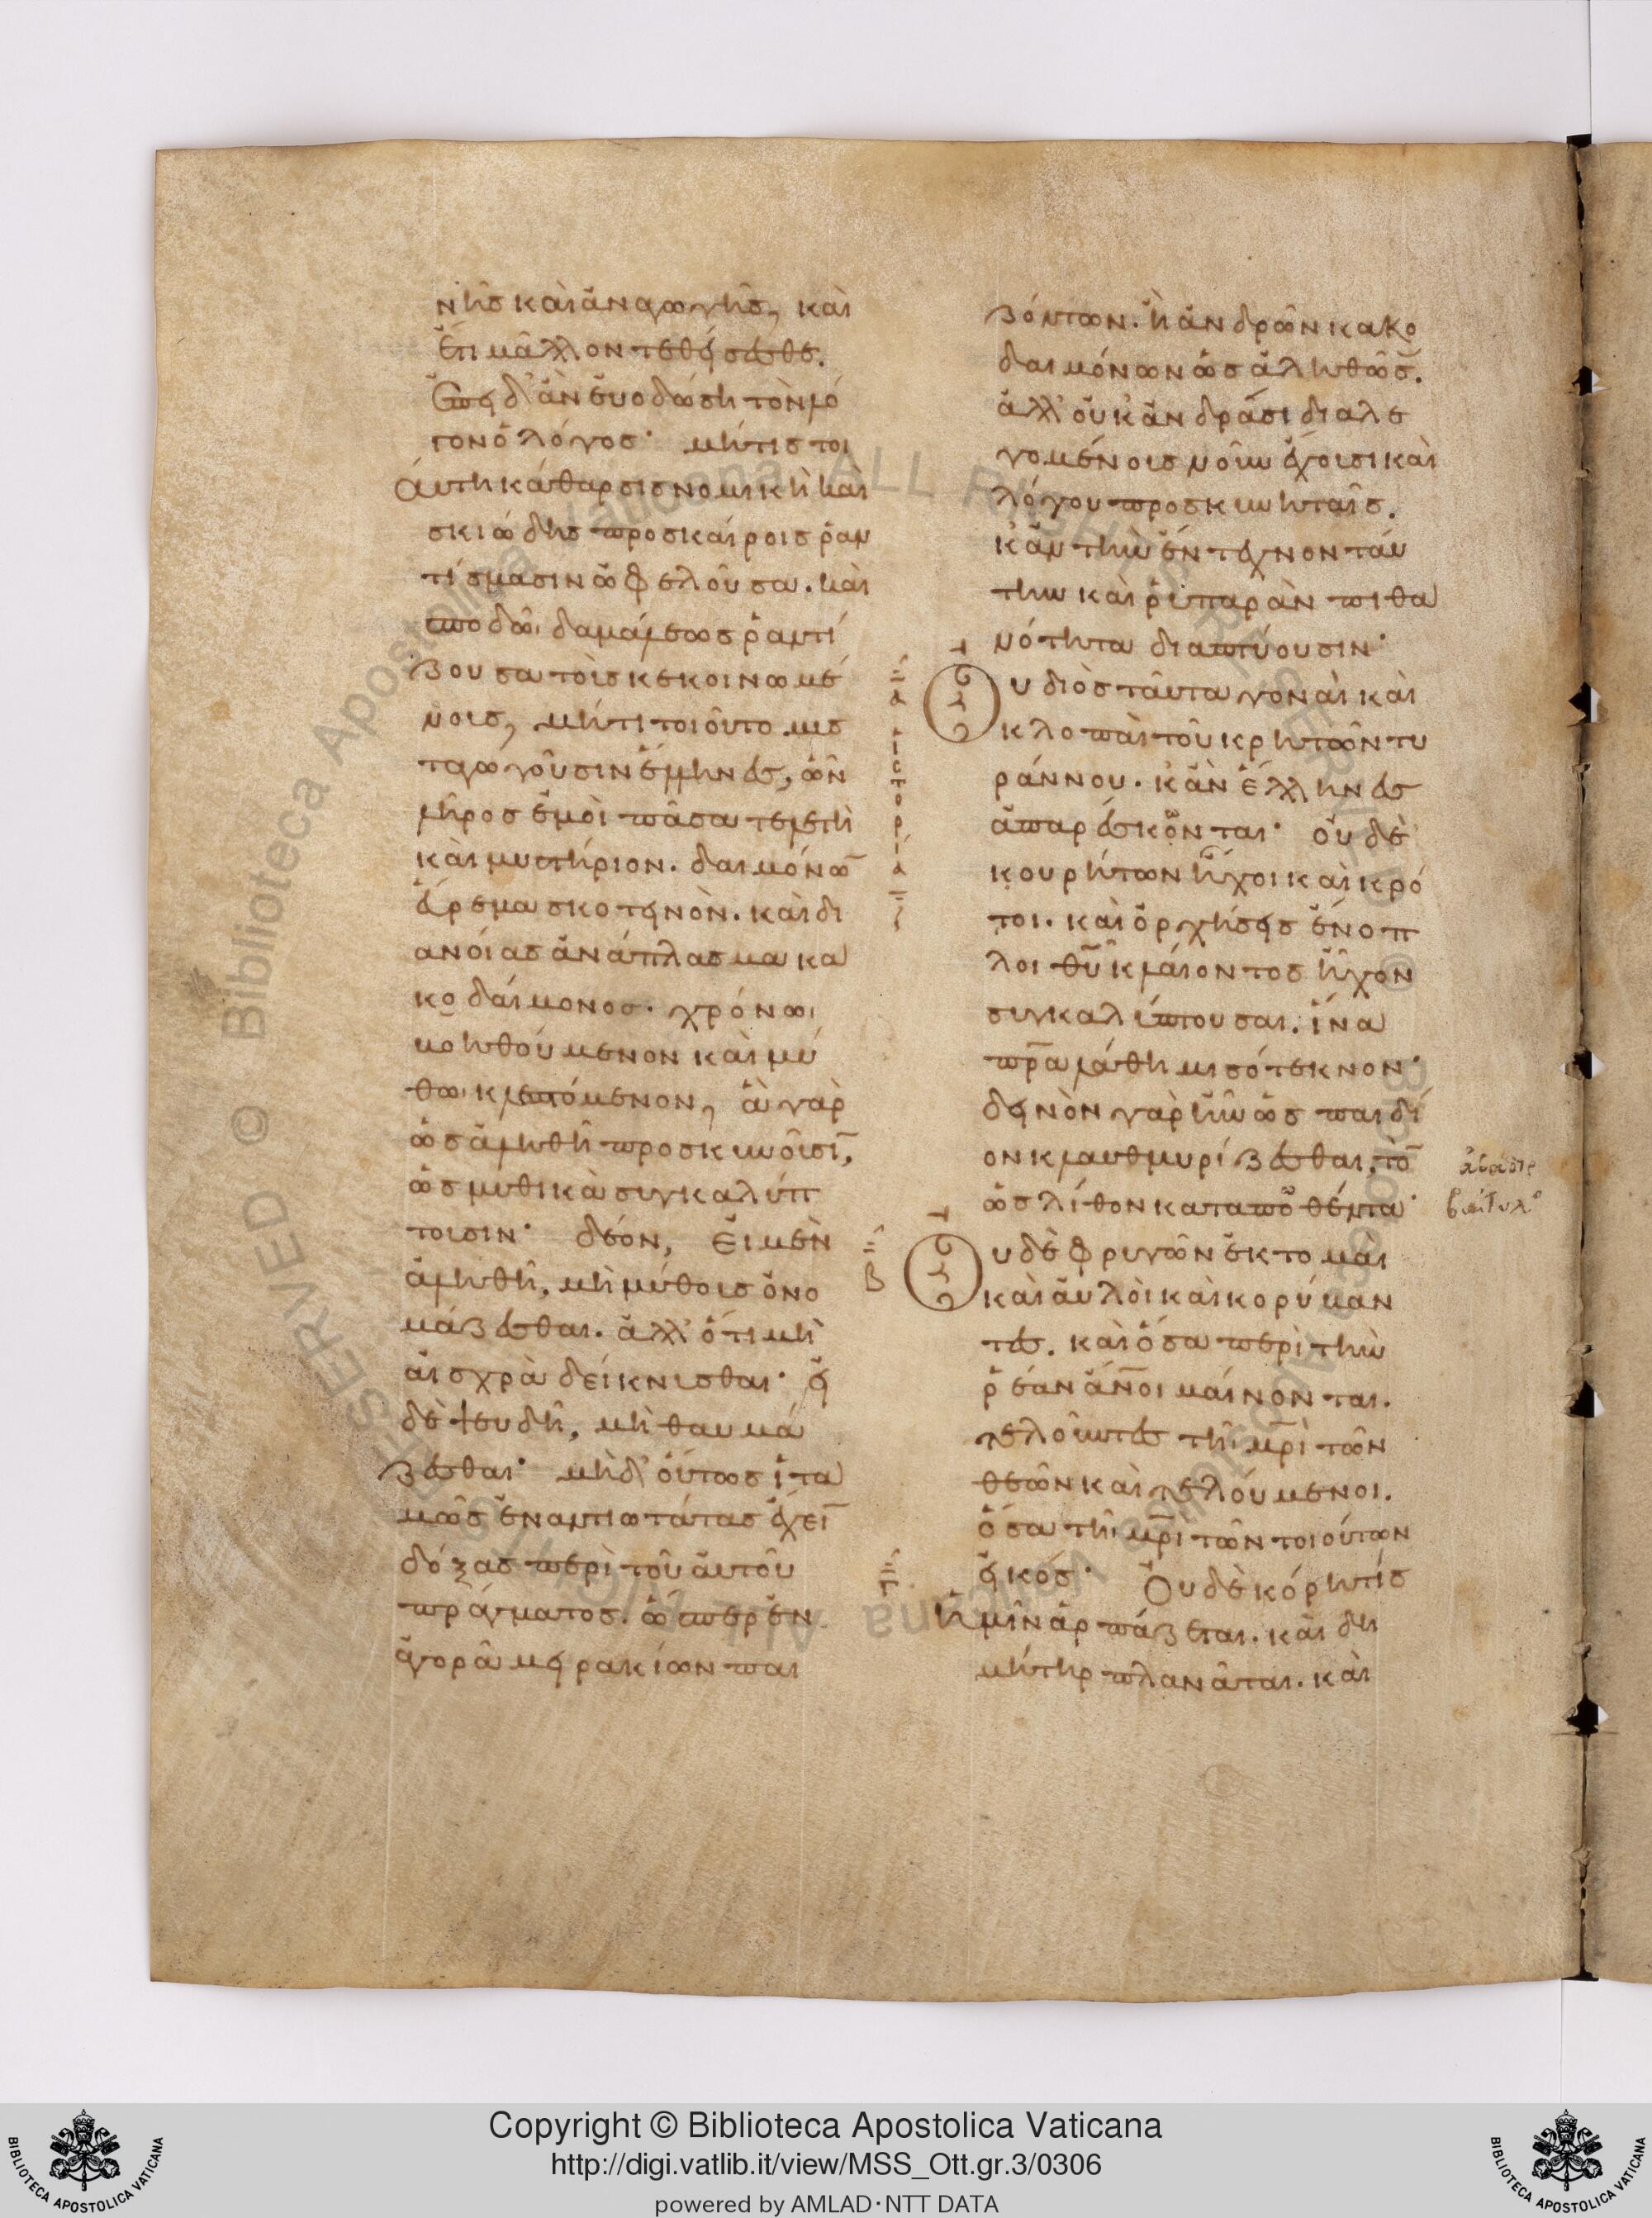 νῆς καὶ ἀναγωγῆς, καὶ
ἔτι μᾶλλον τεθήσεσθε.
δ’ ἂν εὐοδώση τὸν
ὁ λόγος· μή τις τοι
αύτη κάθαρσις νομικὴ καὶ
σκιώδης προσκαίροις ῥαν
τίσμασιν ὠφελοῦσα. καὶ
σποδῶι δαμάλεως ῥαντί
ζουσα τοὺς κεκοινωμέ
νους, μή τι τοιοῦτο μυσ
ταγωγοῦσιν ἕλληνες, ὧν
λῆρος ἐμοὶ πᾶσα τελετὴ
καὶ μυστήριον. δαιμόνω̅
εὕρεμα σκοτεινὸν. καὶ δι
ανοίας ἀνάπλασμα κα
κοδαίμονος. χρόνωι
βοηθούμενον καὶ μύ
θωι κλεπτόμενον, ἃ γὰρ
ὡς ἀληθῆ προσκυνοῦσι̅,
ὡς μυθικὰ συγκαλύπ
τουσιν· δέον, εἰ μὲν
ἀληθῆ, μὴ μύθους ὀνο
μάζεσθαι. ἀλλ’ ὅτι μὴ
αἰσχρὰ δείκνυσθαι· εἰ
δὲ ψευδῆ, μὴ θαυμά
ζεσθαι· μὴ δ’ οὕτως ἰτα
μῶς ἐναντιωτάτας ἔχει̅
δόξας περὶ τοῦ αὐτοῦ
πράγματος. ὥσπερ ἐν
ἀγορᾶ μειρακίων παι
ζόντων. ἢ ἀνδρῶν κακο
δαιμόνων ὡς ἀληθῶς.
ἀλλ’ οὐκ ἀνδράσι διαλε
γομένοις νοῦν ἔχουσι καὶ
λόγου προσκυνηταῖς.
κἂν τὴν ἔντεχνον ταύ
την καὶ ῥυπαρὰν πιθα
νότητα διαπτύουσιν·
Οὐ διὸς ταῦτα γοναὶ καὶ
κλοπαὶ τοῦ κρητῶν τυ
ράννου. κἂν ἕλληνες
ἀπαρέσκωνται· οὐδὲ
κουρήτων ἦχοι καὶ κρό
τοι. καὶ ὀρχήσεις ἔνοπ
λοι θυ̅ κλαίοντος ἦχον
συγκαλύπτουσαι. ἵνα
πρ̅α λάθη μισότεκνον·
δεινὸν γὰρ ἦν ὡς παιδί
ον κλαυθμυρίζεσθαι. τὸ̅
ὡς λίθον καταποθέντα·
Οὐδὲ φρυγῶν ἐκτομαὶ
καὶ αὐλοὶ καὶ κορύβαν
τες. καὶ ὅσα περὶ τὴν
ῥέαν ἄν̅οι μαίνονται.
τελοῦντες τῆι μρ̅ὶ τῶν
θεῶν καὶ τελούμενοι.
ὅσα τῆι μρ̅ὶ τῶν τοιούτων
εἰκός· Οὐδὲ κόρη τίς
ἡμῖν ἁρπάζεται. καὶ δη
μήτηρ πλανᾶται. καὶ
α
ἱστορία
β
γ
Copyright © Biblioteca Apostolica Vaticana
http://digi.vatlib.it/view/MSS_Ott.gr.3/0306
powered by AMLAD·NTT DATA
BIBLIOTECA APOSTOLICA VATICANA
BIBLIOTECA APOSTOLICA VATICANA